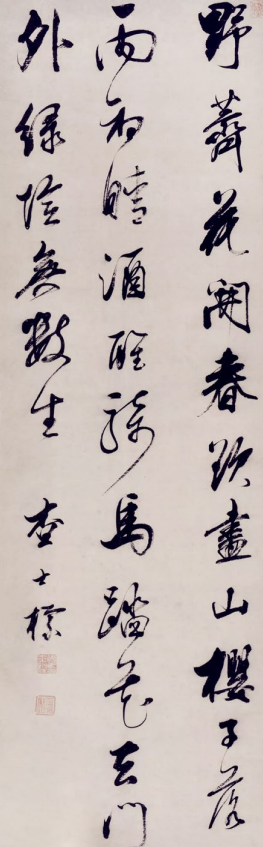 野薺花開春欲盡山櫻子落
雨初晴酒醒騎馬踏花去門
外綠陰無數生
查士標